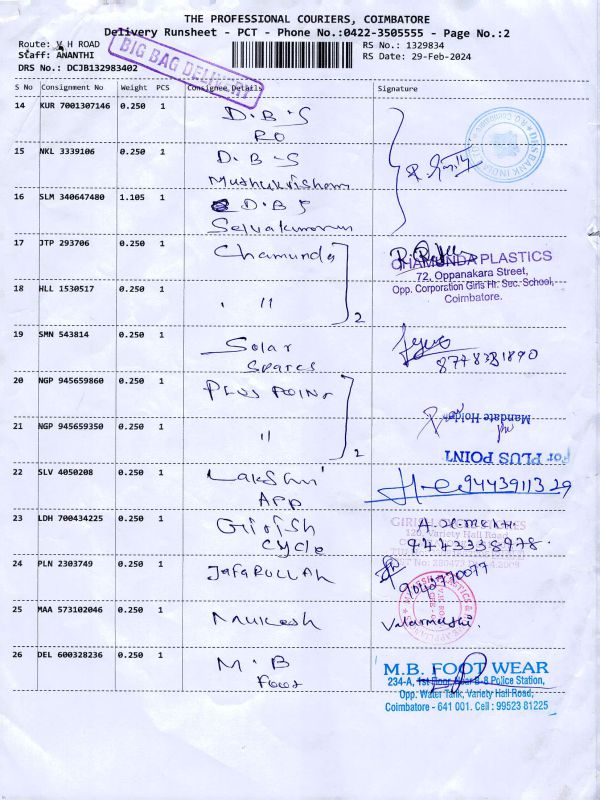 THE PROFESSIONAL COURIERS, COIMBATORE
Delivery Runsheet - PCT - Phone No.:0422-3505555 - Page No.:2
Route: V H ROAD
RS No.: 1329834
Staff: ANANTHI
RS Date: 29-Feb-2024
DRS No.: DCJB132983402
BIG BAG DELIVERY
S No Consignment No Weight PCS Consignee Details Signature
14 KUR 7001307146 0.250 1 D.B.S
RO
15 NKL 3339106 0.250 1 D.B-S
Muthukrishnan
DBS BANK INDIA
16 SLM 340647480 1.105 1 D.B S
Selvakumaran
17 JTP 293706 0.250 1 Chamunda
CHAMUNDA PLASTICS
72, Oppanakara Street,
Opp. Corporation Girls Hr. Sec. School,
Coimbatore.
18 HLL 1530517 0.250 1 "
2
19 SMN 543814 0.250 1 Solar
Spares
8778381890
20 NGP 945659860 0.250 1 PLUS POINT
Mandate Holder
21 NGP 945659350 0.250 1 "
2
For PLUS POINT
22 SLV 4050208 0.250 1 Lakshmi
APP
9443911329
23 LDH 700434225 0.250 1 Girish
Cycle
120, Variety Hall Road
9443338978.
24 PLN 2303749 0.250 1 JAFARULLAH
9040770077
25 MAA 573102046 0.250 1 Mukesh
Valarmathi.
26 DEL 600328236 0.250 1 M.B
Foot
M.B. FOOT WEAR
234-A, 1st Floor, Near B-8 Police Station,
Opp. Water Tank, Variety Hall Road,
Coimbatore - 641 001. Cell : 99523 81225